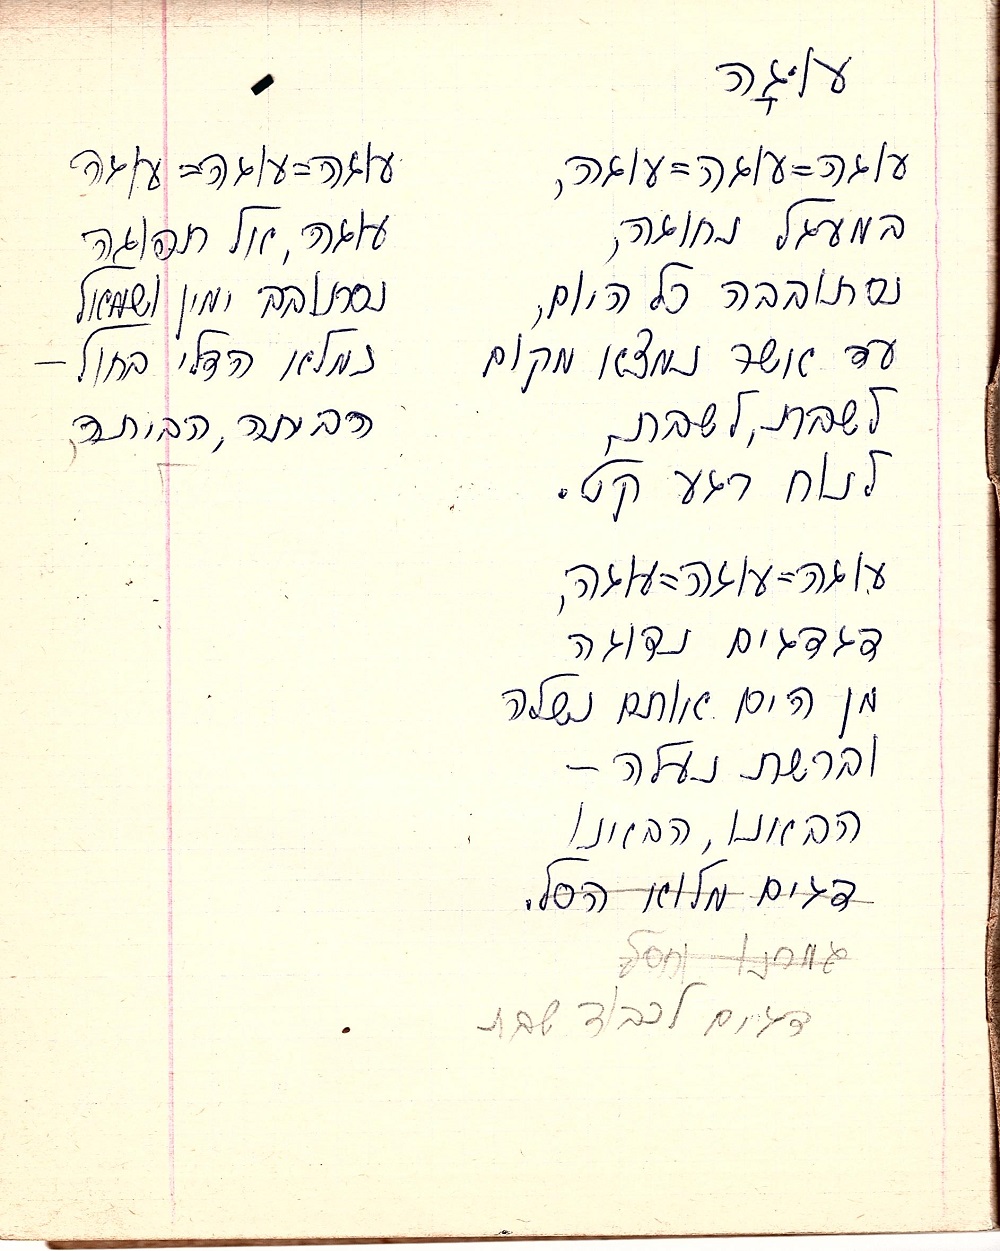 עוּגָה
עוגה=עוגה=עוגה,
במעגל נחוגה,
נסתובבה כל היום,
עד אשר נמצא מקום
לשבת, לשבת,
לנוח רגע קט.
עוגה=עוגה=עוגה,
דגדגים נדוגה
מן הים אותם נשלה
וברשת נעלה –
הבאנו, הבאנו
דגים מלוא הסל.
גמרנו וחסל
דגים לכבוד שבת
עוגה=עוגה=עוגה
עוגה, אל תפוגה
נסתובב ימין ושמאל
נמלא הדלי בחול –
הביתה, הביתה,